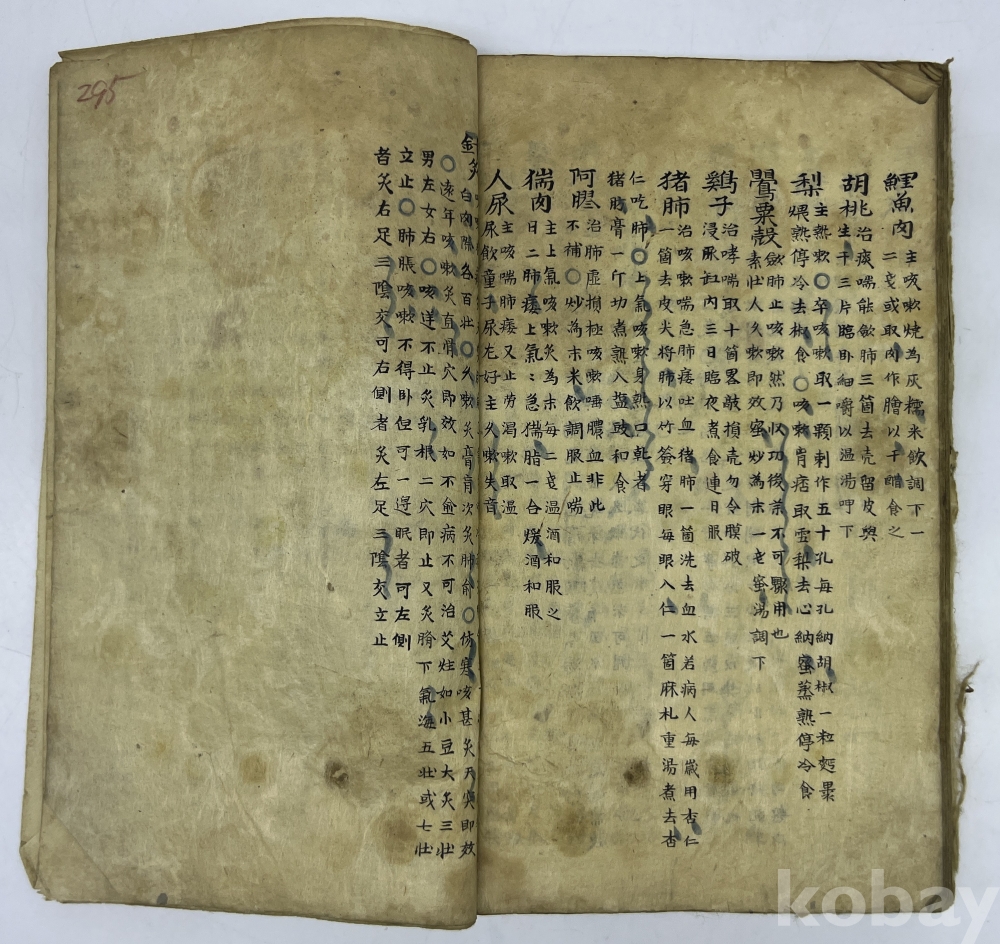 鯉魚肉 主咳嗽燒為灰糯米飲調下一
二戔或取肉作膾以干醋食之
胡桃 治痰喘能斂肺三箇去壳留皮與
生干三片臨卧細嚼以温湯呷下
梨 主熱嗽〇卒咳嗽取一顆刺作五十孔每孔納胡椒一粒麪裹
煨熟停冷去椒食〇咳嗽胷痞取雪梨去心納蜜蒸熟停冷食
鸎粟殼 斂肺止咳嗽然乃収功後茶不可驟用也
素壯人久嗽即效蜜炒為末一戔蜜湯調下
鷄子 治哮喘取十箇畧敲損壳勿令膜破
浸尿缸內三日臨夜煮食連日服
猪肺 治咳嗽喘急肺痿吐血猪肺一箇洗去血水若病人每歲用杏仁
一箇去皮尖將肺以竹簽穿眼每眼入仁一箇麻札重湯煮去杏
仁吃肺〇上氣咳嗽身熱口乾者
猪肪膏一斤切煮熟入盐豉和食
阿膠 治肺虛損極咳嗽唾膿血非此
不補〇炒為末米飲調服止喘
猯肉 主上氣咳嗽炙為末每二戔温酒和服之
日二肺痿上氣〻急猯脂一合煖酒和服
人尿 主咳喘肺痿又止劳渴嗽取温
尿飲童子尿尤好主久嗽失音
針灸
白肉際各百壯〇久嗽灸膏肓次灸肺俞〇傷寒咳甚灸天突即效
〇遠年咳嗽灸直骨穴即效如不愈病不可治艾炷如小豆大灸三壯
男左女右〇咳逆不止灸乳根二穴即止又灸臍下氣海五壯或七壯
立止〇肺脹咳嗽不得卧但可一邊眠者可左側
者灸右足三陰交可右側者灸左足三陰交立止
295
kobay